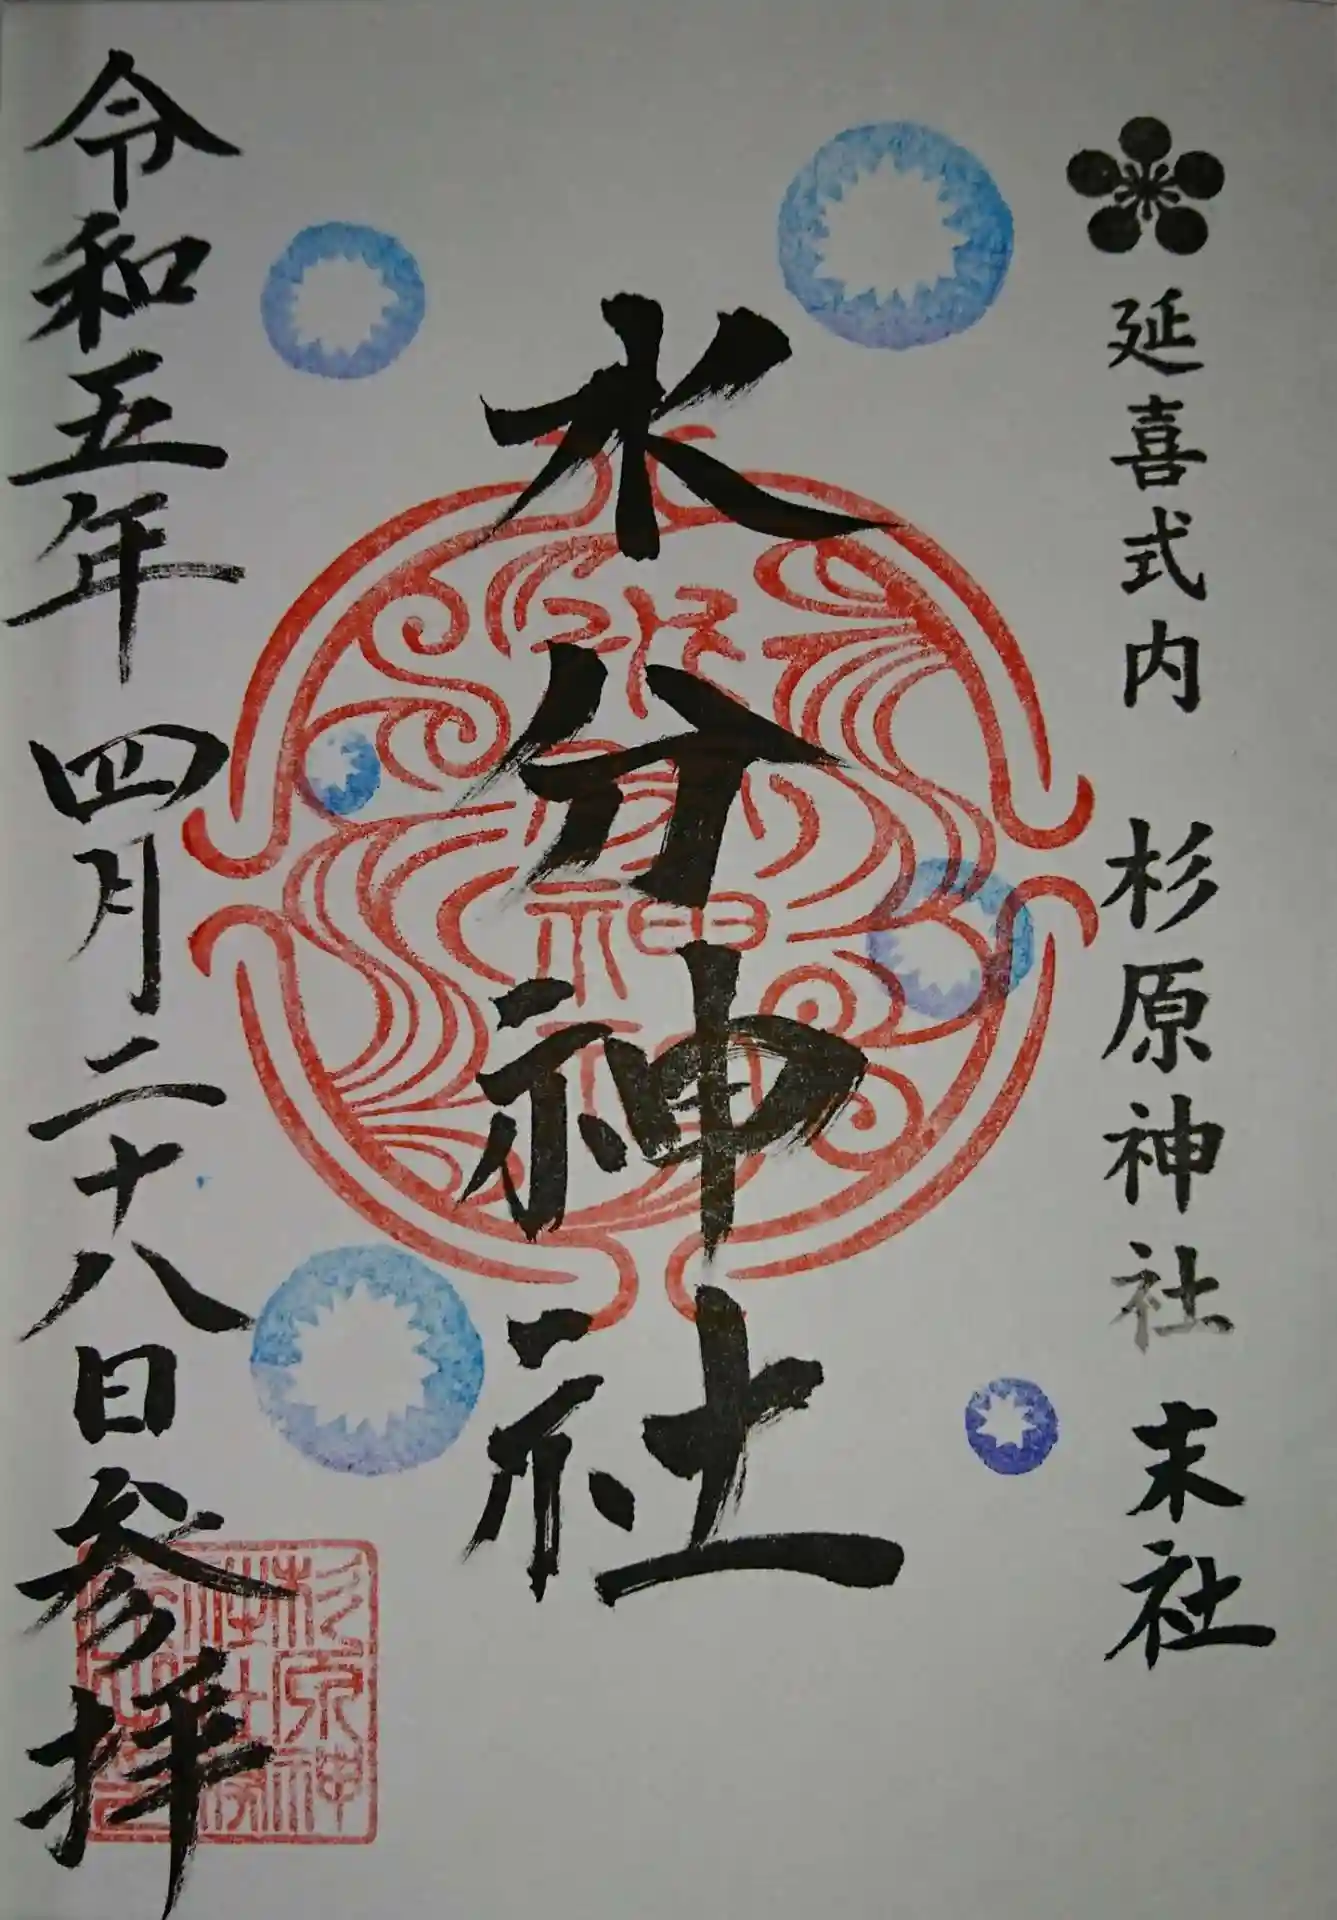 延喜式内 杉原神社 末社
水分神社
令和五年 四月二十八日参拝
水分神社
杉原神
社社務